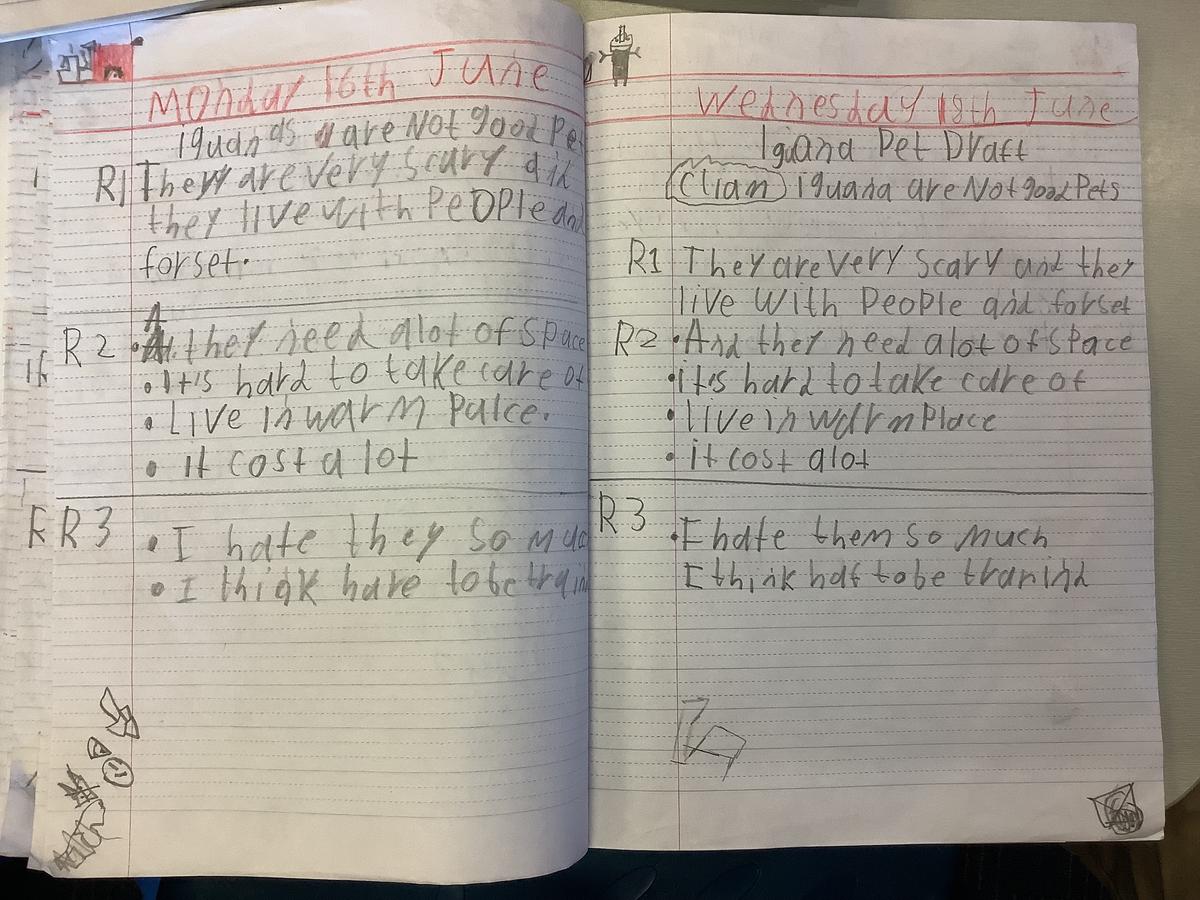 Monday 16th June
Iguanas are Not good Pet
R1 They are very scary and
they live with PeoPle and
forset.
R2 A they need alot of space
• It's hard to take care of
• Live in warm Palce.
• it cost a lot
R3 • I hate they so muc
• I think have to be train
Wednesday 18th June
Iguana Pet Draft
Cliam iguana are Not good Pets
R1 They are very scary and they
live with People and forset
R2 • And they need alot of space
• it's hard to take care of
• live in warm Place
• it cost alot
R3 • I hate them so much
I think haf to be tranind